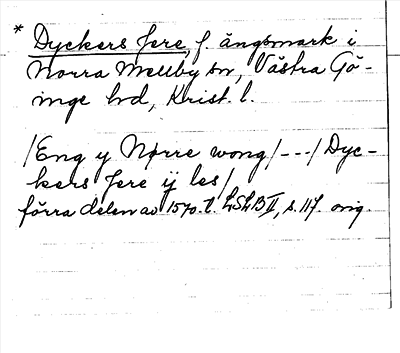 * Dyckers Jere, f. ängsmark i
Norra Mellby sn, Västra Gö-
inge hd, Krist. l.
/Eng y Nørre wong/---/Dyc-
kers Jere ij les/
förra delen av 1570.t. LSLB II, s. 117. orig.